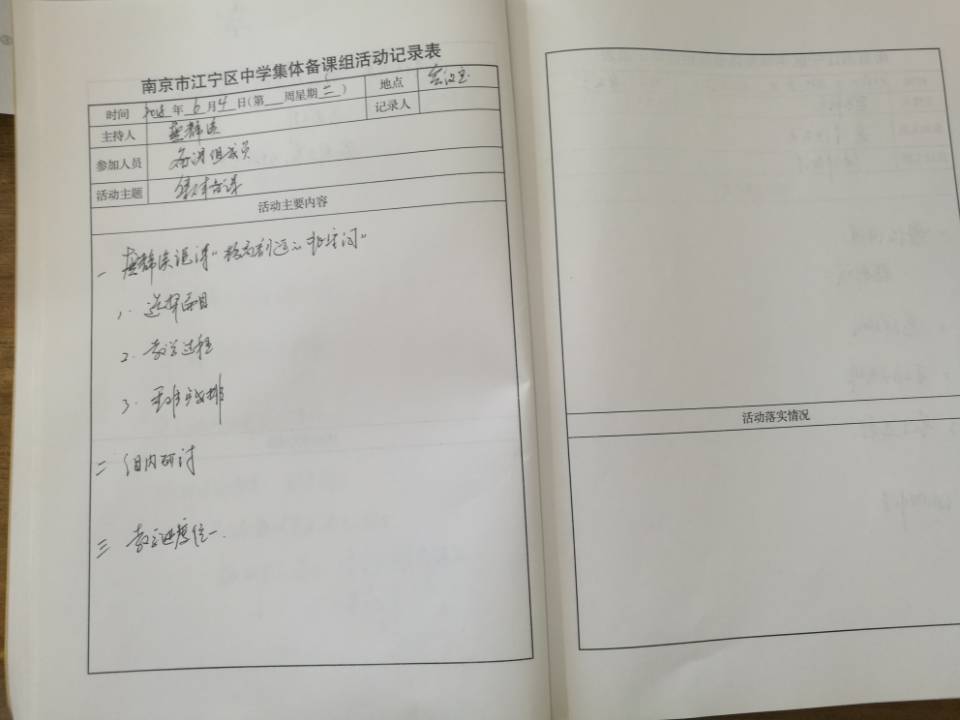 南京市江宁区中学集体备课组活动记录表
时间 年 6 月 4 日(第 周星期 二 ) 地点 会议室
主持人 记录人
参加人员 备课组成员
活动主题 集体备课
活动主要内容
一
1. 选择题目
2. 教学过程
3. 重难点
二 组内研讨
三 教学进度统一.
活动落实情况